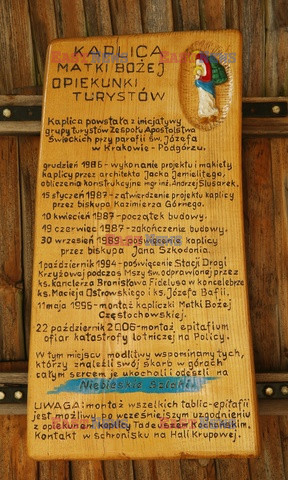 KAPLICA
MATKI BOŻEJ
OPIEKUNKI
TURYSTÓW
Kaplica powstała z inicjatywy
grupy turystów Zespołu Apostolstwa
Świeckich przy parafii św. Józefa
w Krakowie - Podgórzu.
grudzień 1986 - wykonanie projektu i makiety
kaplicy przez architekta Jacka Jemielitego,
obliczenia konstrukcyjne mgr inż. Andrzej Ślusarek,
15 styczeń 1987 - zatwierdzenie projektu kaplicy
przez biskupa Kazimierza Górnego.
10 kwiecień 1987 - początek budowy.
19 czerwiec 1987 - zakończenie budowy.
30 wrzesień 1989 - poświęcenie kaplicy
przez biskupa Jana Szkodonia.
1 październik 1994 - poświęcenie Stacji Drogi
Krzyżowej podczas Mszy św. odprawionej przez
ks. kanclerza Bronisława Fidelusa w koncelebrze
ks. Macieja Ostrowskiego i ks. Józefa Bafii.
11 maja 1996 - montaż kapliczki Matki Bożej
Częstochowskiej.
22 październik 2006 - montaż epitafium
ofiar katastrofy lotniczej na Policy.
W tym miejscu modlitwy wspominamy tych,
którzy znaleźli swój skarb w górach
całym sercem je ukochali i odeszli na
Niebieskie Szlaki.
UWAGA: montaż wszelkich tablic-epitafii
jest możliwy po wcześniejszym uzgodnieniu
z opiekunem kaplicy Tadeuszem Kochańskim.
Kontakt w schronisku na Hali Krupowej.